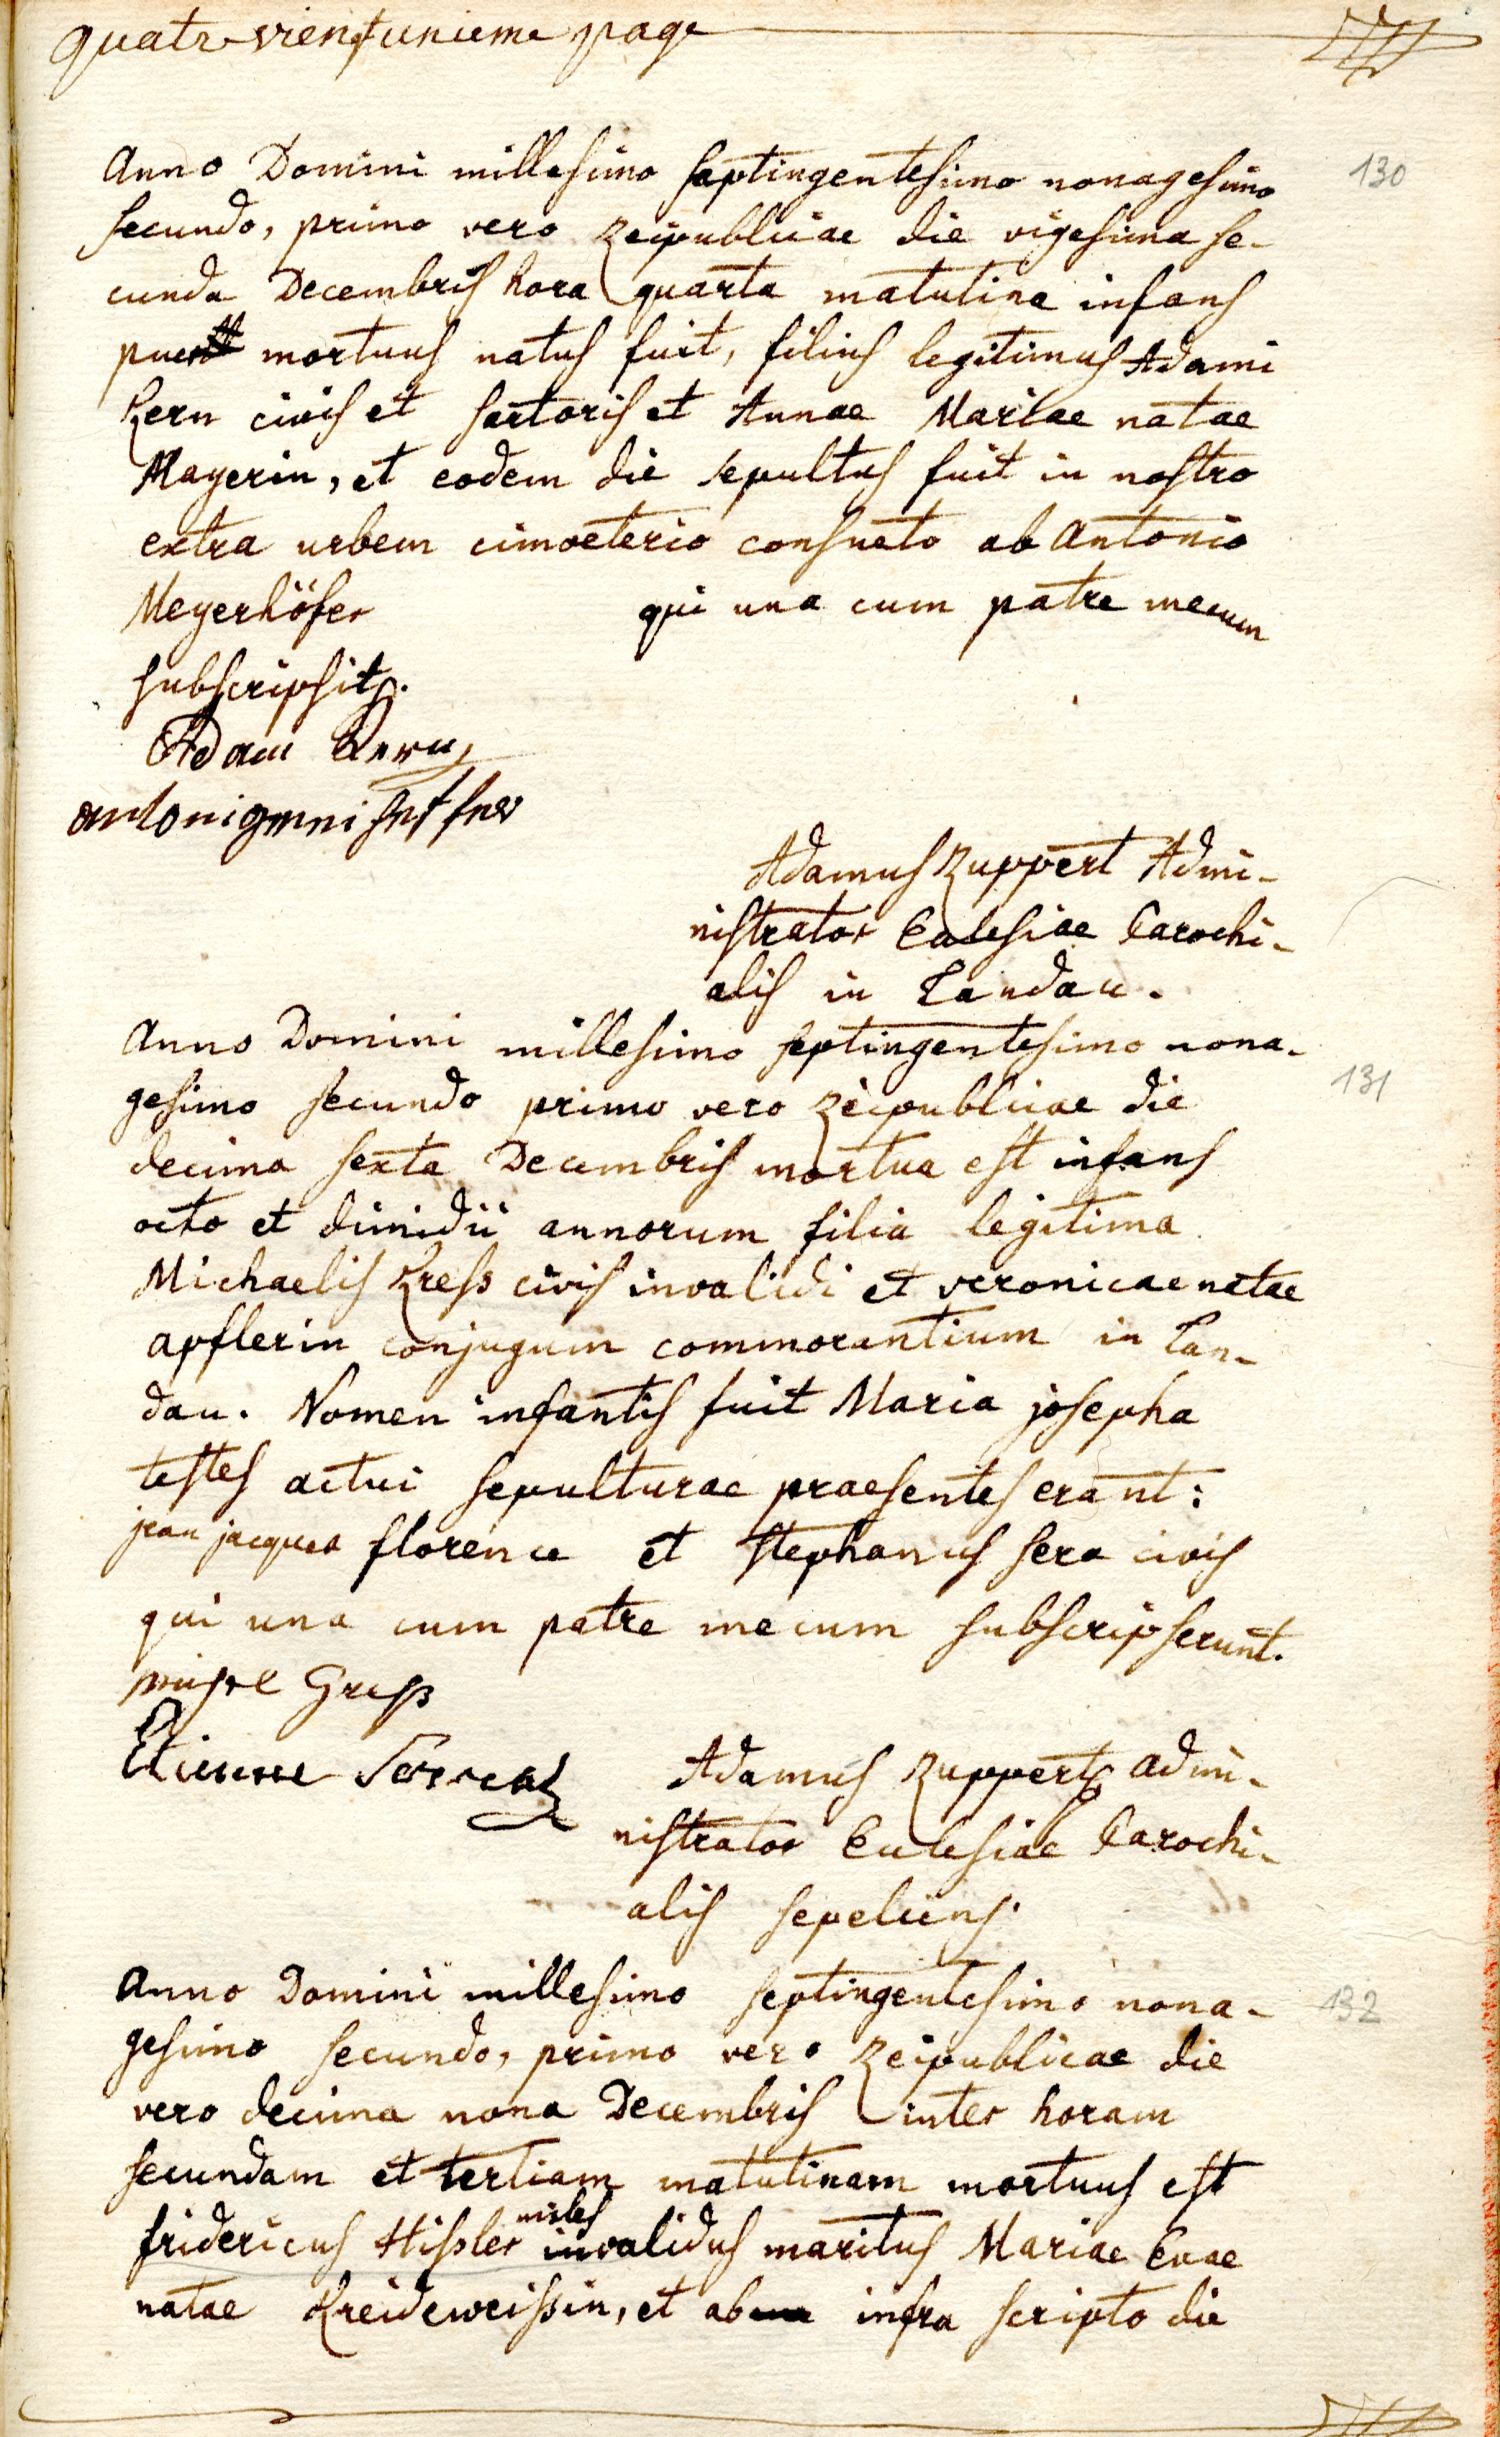 quatrevient unieme page
Anno Domini millesimo septingentesimo nonagesimo
130
secundo, primo vero Reipublicae die vigesima se-
cunda Decembris hora quarta matutina infans
puer mortuus natus fuit, filius legitimus Adami
Kern civis et sartoris et Annae Mariae natae
Mayerin, et eodem die sepultus fuit in nostro
extra urbem cimoeterio consueto ab Antonio
Meyerhöfer qui una cum patre mecum
subscripsit.
Adam Kern
antoni
Adamus Ruppert Admi-
nistrator Eclesiae Parochi-
alis in Landau.
Anno Domini millesimo septingentesimo nona-
131
gesimo secundo primo vero Reipublicae die
decima sexta Decembris mortua est infans
octo et dimidii annorum filia legitima
Michaelis Kress civis invalidi et veronicae natae
apflerin conjugum commorantium in Lan-
dau. Nomen infantis fuit Maria josepha
testes actui sepulturae praesentes erant:
jean jacques florence et stephanus sera civis
qui una cum patre mecum subscripserunt.
Greß
Etienne
Adamus Ruppert admi-
nistrator Eclesiae Parochi-
alis sepeliens.
Anno Domini millesimo septingentesimo nona-
132
gesimo secundo, primo vero Reipublicae die
vero decima nona Decembris inter horam
secundam et tertiam matutinam mortuus est
miles
fridericus Hißler invalidus maritus Mariae Evae
natae Kreideweissin, et ab infra scripto die